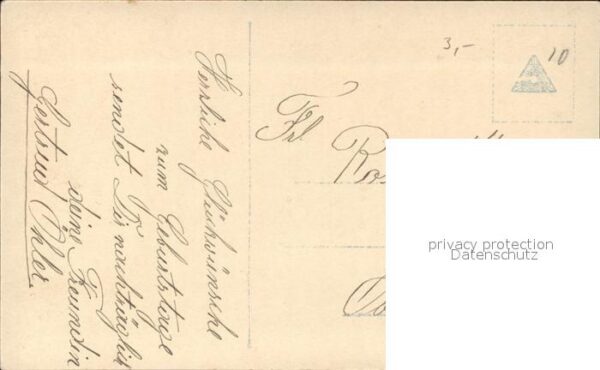 Herzliche Glückwünsche
zum Geburtstage
sendet Dir nachträglich
deine Freundin
Gertrud
3,-
10
Frl
privacy protection
Datenschutz